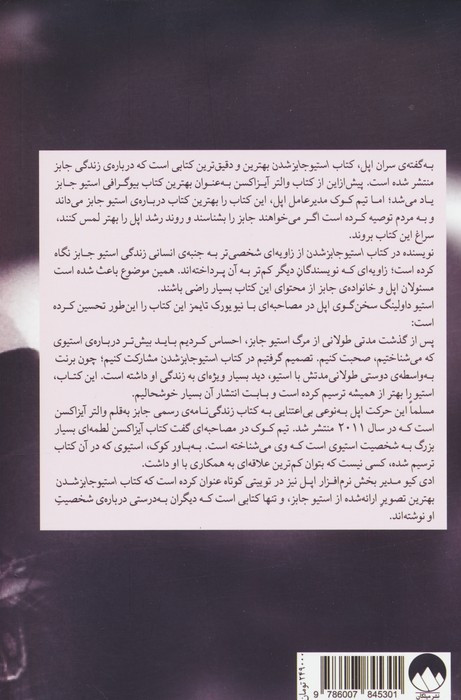 به‌گفته‌ی سران اپل، کتاب استیوجابزشدن بهترین و دقیق‌ترین کتابی است که درباره‌ی زندگی جابز
منتشر شده است. پیش‌ازاین از کتاب والتر آیزاکسن به‌عنوان بهترین کتاب بیوگرافی استیو جابـز
یاد می‌شد؛ اما تیم کـوک مدیرعامل اپل، این کتاب را بهترین کتاب دربـاره‌ی استیو جابز می‌داند
و به مردم توصیه کـرده است اگـر می‌خواهند جابز را بشناسند و روند رشد اپل را بهتر لمس کنند،
سراغ این کتاب بروند.
نویسنده در کتاب استیوجابزشدن از زاویه‌ای شخصی‌تر به جنبه‌ی انسانی زندگی استیو جـابـز نگاه
کرده است؛ زاویه‌ای کـه نویسندگان دیگر کم‌تر به آن پرداخته‌اند. همین موضوع باعث شده است
مسئولان اپل و خانواده‌ی جابز از محتوای این کتاب بسیار راضی باشند.
استیو داولینگ سخن‌گوی اپل در مصاحبه‌ای با نیویورک تایمز این کتاب را این‌طور تحسین کـرده
است:
پـس از گـذشت مدتی طولانی از مرگ استیو جابز، احساس کـردیم بـایـد بیش‌تر درباره‌ی استیوی
که می‌شناختیم، صحبت کنیم. تصمیم گرفتیم در کتاب استیوجابزشدن مشارکت کنیم؛ چون برنت
به‌واسطه‌ی دوستی طولانی‌مدتش با استیو، دید بسیار ویژه‌ای به زندگی او داشته است. این کتاب،
استیو را بهتر از همیشه ترسیم کرده است و بـابـت انتشار آن بسیار خوشحالیم.
مسلماً این حرکت اپل به‌نوعی بی‌اعتنایی به کتاب زندگی‌نامه‌ی رسمی جابز به‌قلم والتر آیزاکسن
است کـه در سال ۲۰۱۱ منتشر شد. تیم کـوک در مصاحبه‌ای گفت کتاب آیزاکسن لطمه‌ای بسیار
بزرگ به شخصیت استیوی است که وی می‌شناخته است. به‌بـاور کوک، استیوی که در آن کتاب
ترسیم شده، کسی نیست که بتوان کم‌ترین علاقه‌ای به همکاری با او داشت.
ادی کیو مدیر بخش نرم‌افزار اپـل نیز در توییتی کوتاه عنوان کرده است که کتاب استیوجابزشدن
بهترین تصویرِ ارائه‌شده از استیو جابز، و تنها کتابی است کـه دیگران به‌درستی درباره‌ی شخصیتِ
او نوشته‌اند.
۲۴۹۰۰۰ تومان
9 786007 845301
نشر میلکان